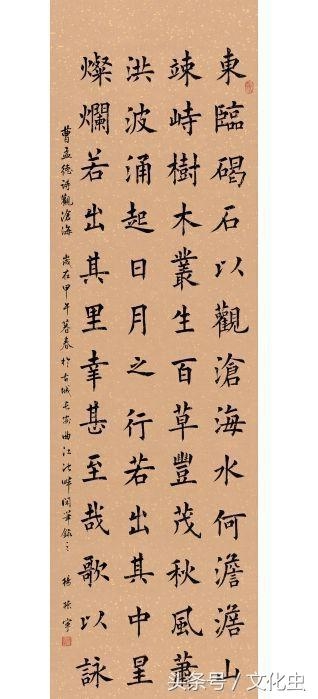 東臨碣石以觀滄海水何澹澹山
竦峙樹木叢生百草豐茂秋風蕭
洪波涌起日月之行若出其中星
燦爛若出其里幸甚至哉歌以詠
曹孟德詩觀滄海 歲在甲午暮春於古城長安曲江池畔
头条号/文化虫